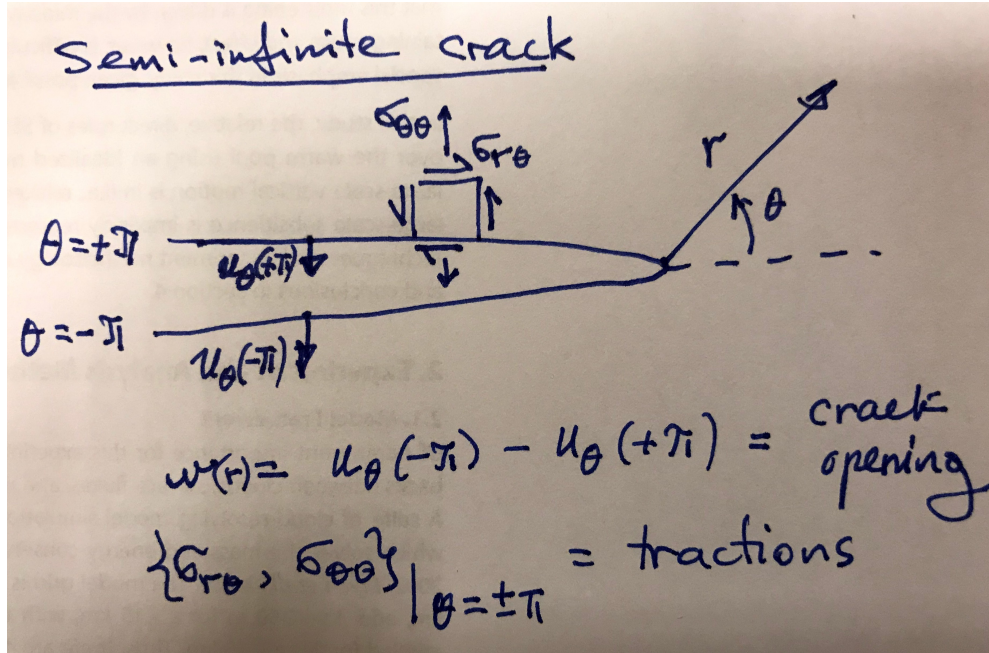 Semi-infinite crack
σθθ
σrθ
r
θ
θ=+π
u_θ(+π)
θ=-π
u_θ(-π)
w(r)= u_θ(-π) - u_θ(+π) = crack opening
{σrθ, σθθ}|θ=±π = tractions